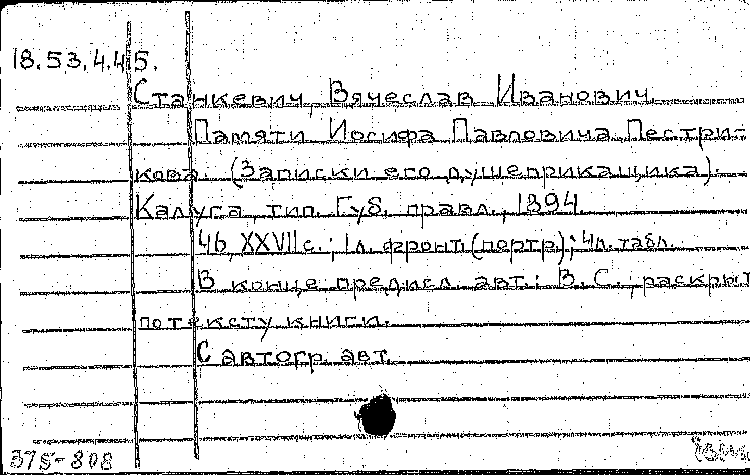 18.53.4.45.
Станкевич, Вячеслав Иванович.
Памяти Иосифа Павловича Пестри-
кова. (Записки его душеприкащика).
Калуга, тип. Губ. правл., 1894.
46, XXVII с.; 1 л. фронт. (портр); 4 л. табл.
В конце предисл. авт.: В. С., раскрыт
по тексту книги.
С автогр. авт.
375-808